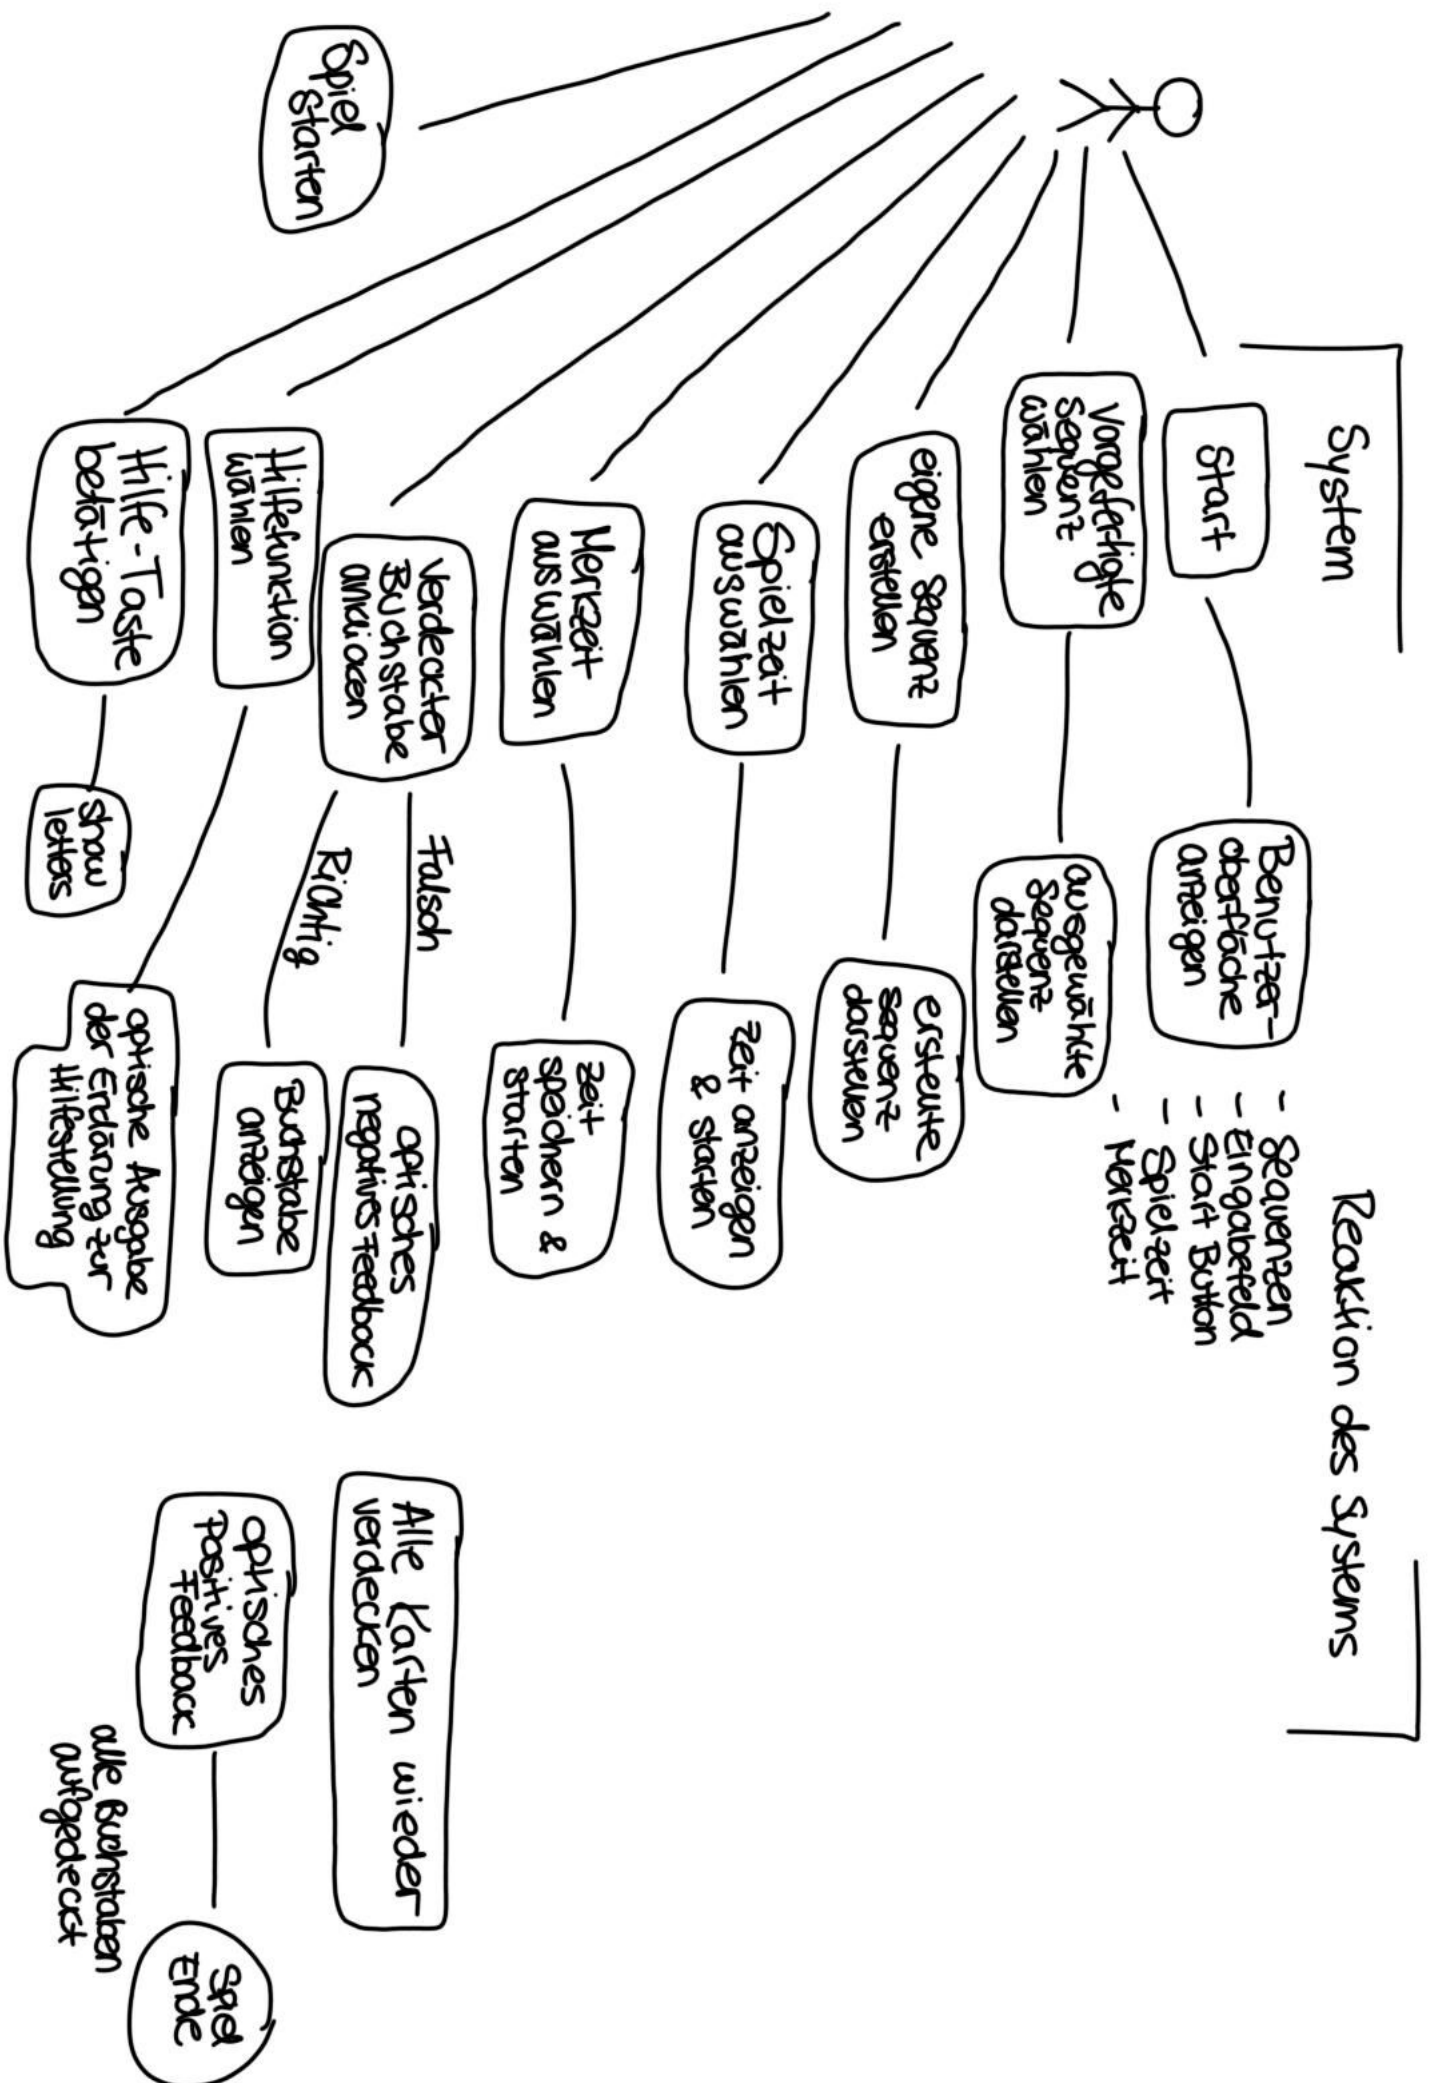 System
Reaktion des Systems
Start
Benutzer-
oberfläche
anzeigen
- Sequenzen
- Eingabefeld
- Start Button
- Spielzeit
- Merkzeit
Vorgefertigte
Sequenz
wählen
ausgewählte
Sequenz
darstellen
eigene Sequenz
erstellen
erstellte
Sequenz
darstellen
Spielzeit
auswählen
Zeit anzeigen
& starten
Merkzeit
auswählen
Zeit
speichern &
starten
Verdeckter
Buchstabe
anklicken
Falsch
optisches
negatives Feedback
Alle Karten wieder
verdecken
Richtig
Buchstabe
anzeigen
optisches
positives
Feedback
alle Buchstaben
aufgedeckt
Spiel
Ende
Hilfefunktion
wählen
optische Ausgabe
der Erklärung zur
Hilfestellung
Hilfe-Taste
betätigen
show
letters
Spiel
starten